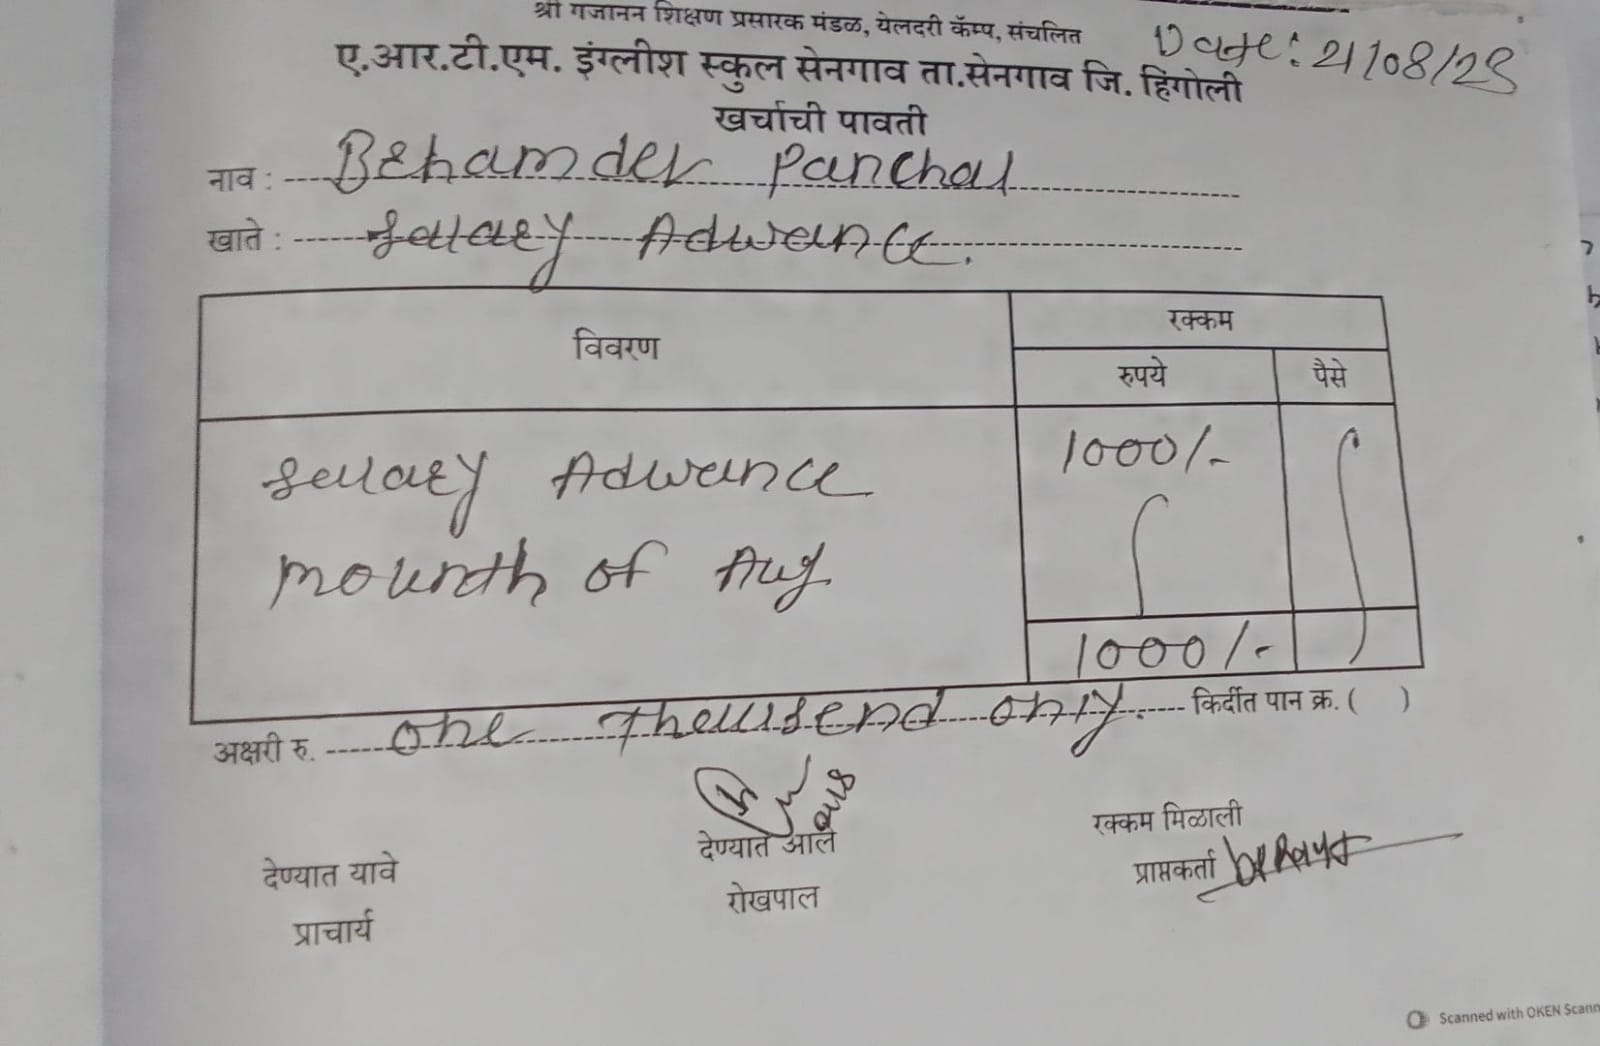 श्री गजानन शिक्षण प्रसारक मंडळ, येलदरी कॅम्प, संचलित
Date: 21/08/25
ए.आर.टी.एम. इंग्लीश स्कुल सेनगाव ता.सेनगाव जि. हिंगोली
खर्चाची पावती
नाव : Panchal
खाते : Sallary Adwance.
विवरण रक्कम
रुपये पैसे
Sallary Adwance 1000/-
mounth of Aug.
1000/-
अक्षरी रु. one thousend only. किर्दीत पान क्र. ( )
देण्यात यावे देण्यात आले रक्कम मिळाली
प्राचार्य रोखपाल प्राप्तकर्ता
Scanned with OKEN Scann